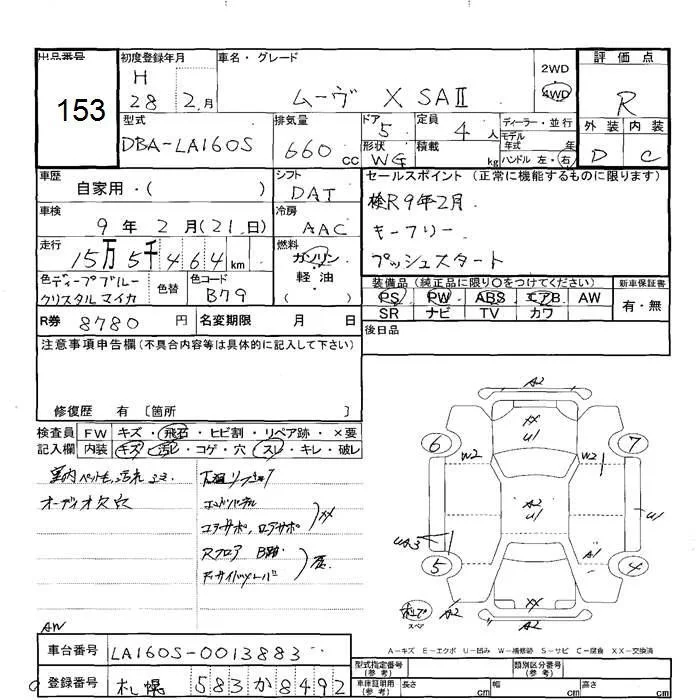 出品番号
153
初度登録年月
H
28 2月
車名・グレード
ムーヴ X SAⅡ
2WD
4WD
評価点
R
外装 内装
D C
型式
DBA-LA160S
排気量
660 cc
ドア 5
形状 WG
定員 4 人
積載 kg
ディーラー・並行
モデル年式 年
ハンドル 左・右
車歴
自家用・( )
シフト
DAT
セールスポイント (正常に機能するものに限ります)
検R9年2月
キーフリー
プッシュスタート
車検
9 年 2 月 (21 日)
冷房
AAC
走行
15万5千464 km
燃料
ガソリン・
軽油・
色 ディープブルー
クリスタルマイカ
色替
色コード
B79
装備品 (純正品に限り○をつけてください)
PS PW ABS エアB AW
SR ナビ TV カワ
新車保証書
有・無
R券 8780 円
名変期限 月 日
後日品
注意事項申告欄 (不具合内容等は具体的に記入して下さい)
修復歴 有 〔箇所 〕
検査員 FW キズ・飛石・ヒビ割・リペア跡・×要
記入欄 内装 キズ・汚れ・コゲ・穴・スレ・キレ・破レ
オーディオ欠穴
エンドパネル
XX
Rフロア
A2
XX
U1
6
7
W2
W2
A2
U1
U1
UA3
A1
5
4
XX
A2
A2
AW
A-キズ E-エクボ U-凹み W-補修跡 S-サビ C-腐食 XX-交換済
車台番号 LA160S-0013883
登録番号 札幌 583 か 8492
型式指定番号
類別区分番号
車庫証明用(参考)
長さ cm
幅 cm
高さ cm